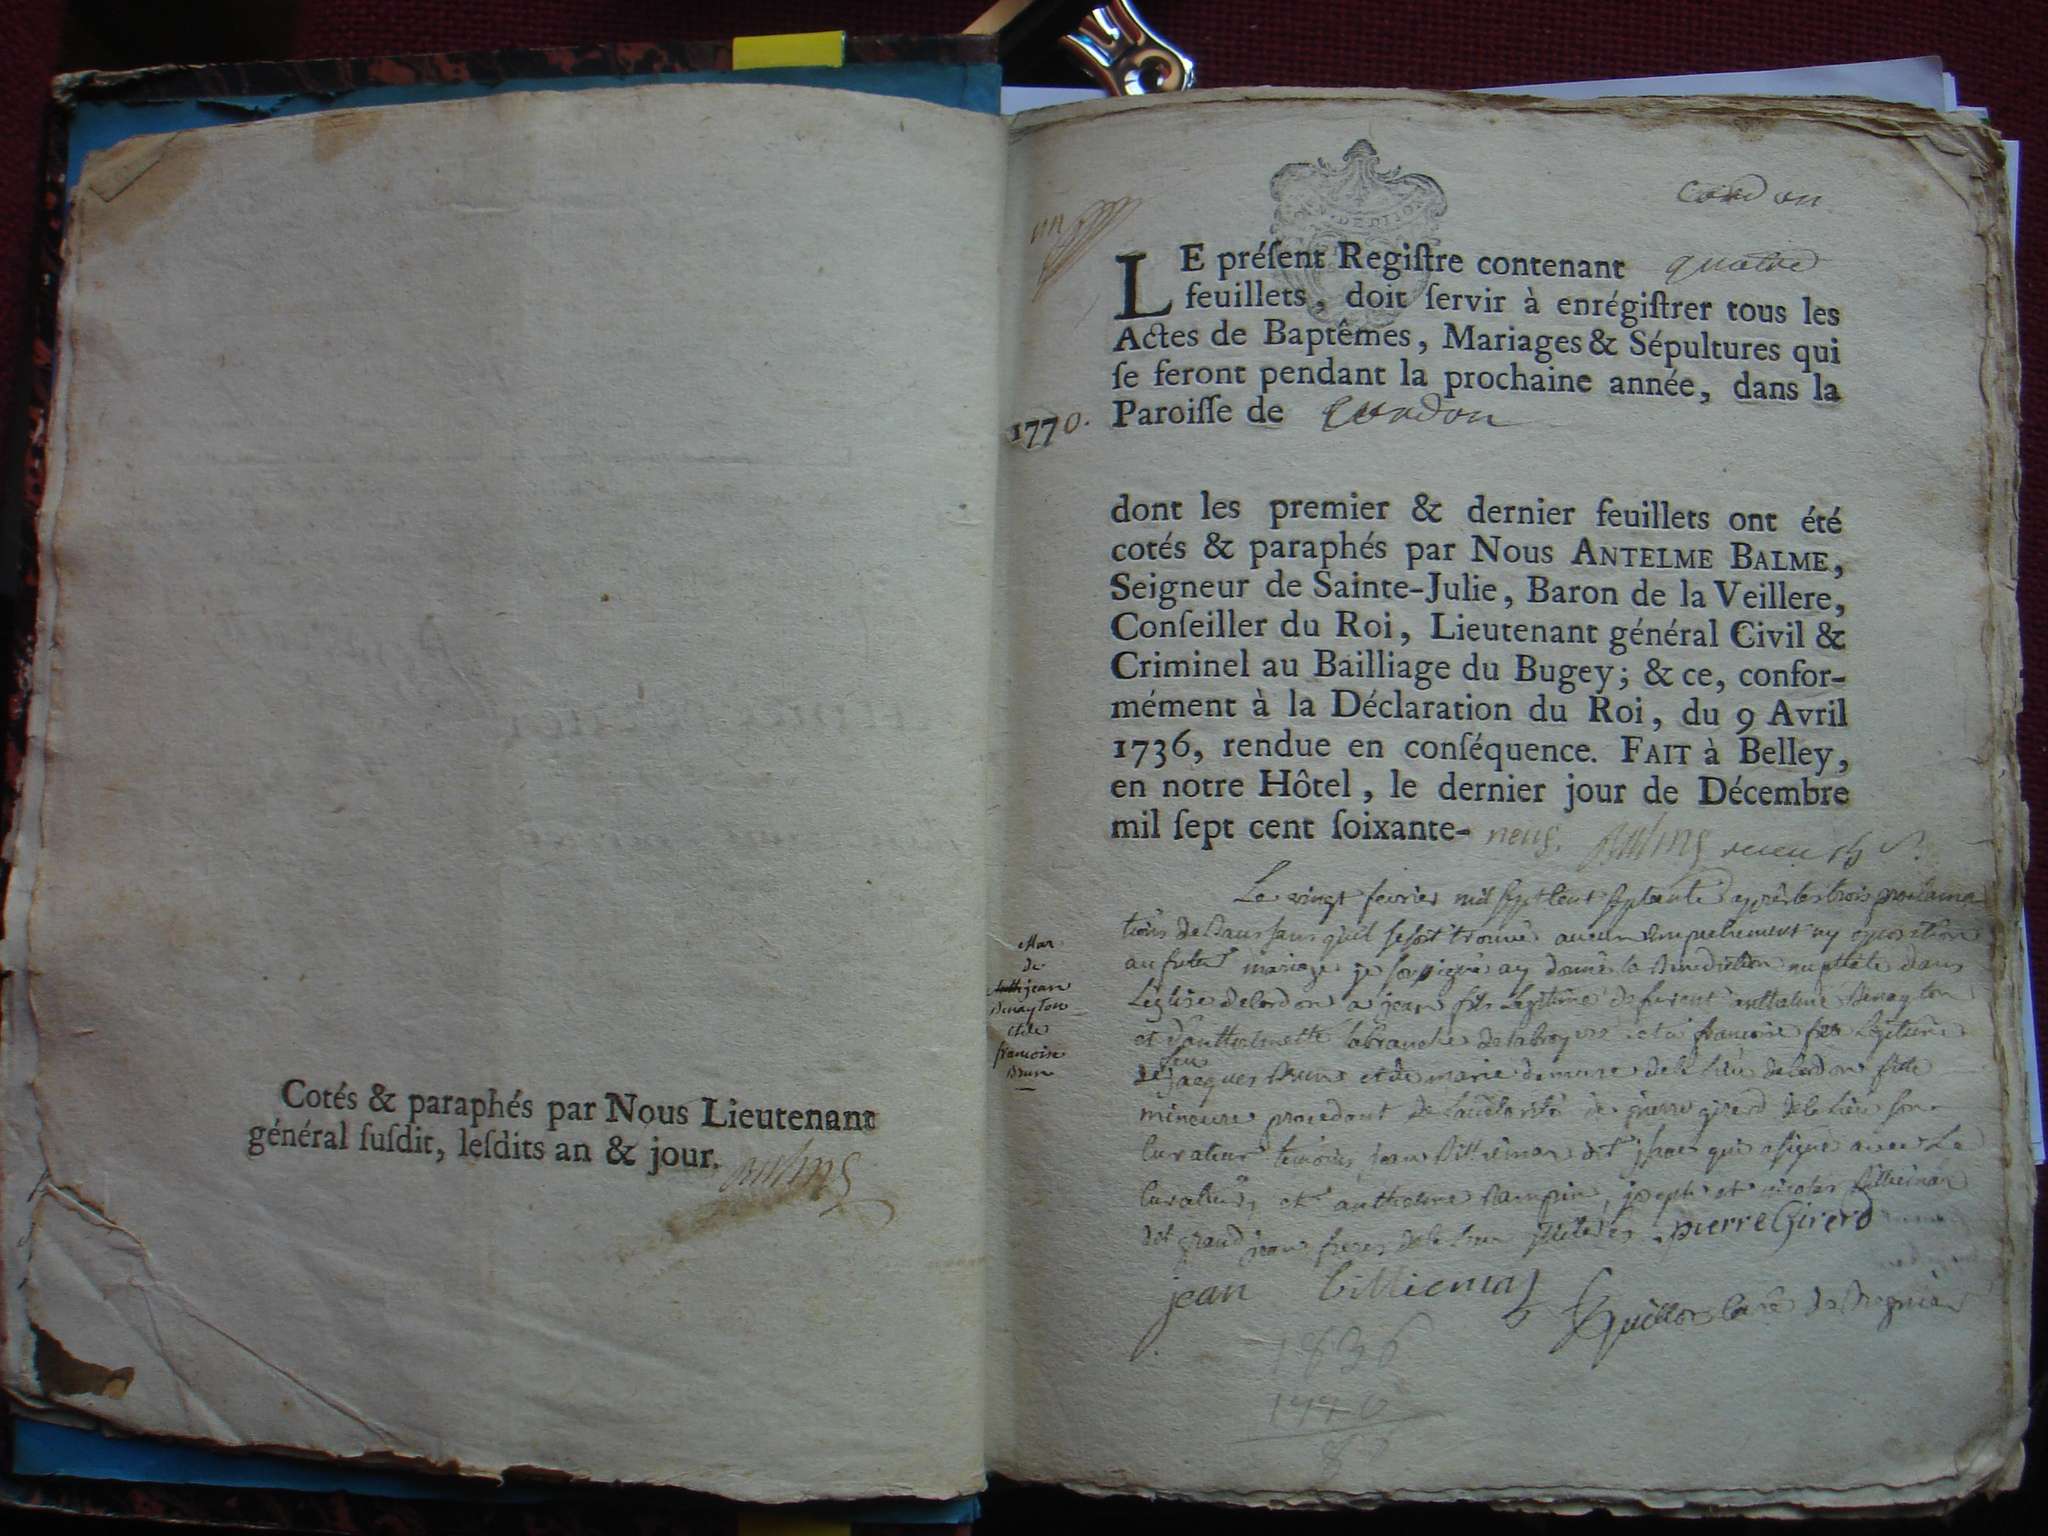 Cotés & paraphés par Nous Lieutenant
général ſuſdit, leſdits an & jour.
Cordon
LE préſent Regiſtre contenant quatre
feuillets, doit ſervir à enrégiſtrer tous les
Actes de Baptêmes, Mariages & Sépultures qui
ſe feront pendant la prochaine année, dans la
1770. Paroiſſe de Cordon
dont les premier & dernier feuillets ont été
cotés & paraphés par Nous ANTELME BALME,
Seigneur de Sainte-Julie, Baron de la Veillere,
Conſeiller du Roi, Lieutenant général Civil &
Criminel au Bailliage du Bugey; & ce, confor-
mément à la Déclaration du Roi, du 9 Avril
1736, rendue en conſéquence. FAIT à Belley,
en notre Hôtel, le dernier jour de Décembre
mil ſept cent ſoixante- neuf.
Mar
de
jean
Benayton
et de
francoise
Brun
Le vingt fevrier mil sept cent septante après les trois proclama
tions de bans sans qu'il se soit trouvé aucun empechement ny oposition
au futur mariage je soussigné ay donné la Benediction nuptiale dans
L'eglise de Cordon a jean fils Legitime de furent anthelme Benayton
et d'anthelmette Labranche et a francoise fille Legitime
de feu jacques Brun et de marie de Cordon fille
mineure procedant de l'authorité de pierre girerd dele lieu son
Curateur temoins jean Billiemas dit qui a signé avec Le
Curateur, et anthelme joseph et nicolas Billiemas
dit grand jean freres pierre Girerd
jean billiemas
Curé de Bregnier
1836
1770